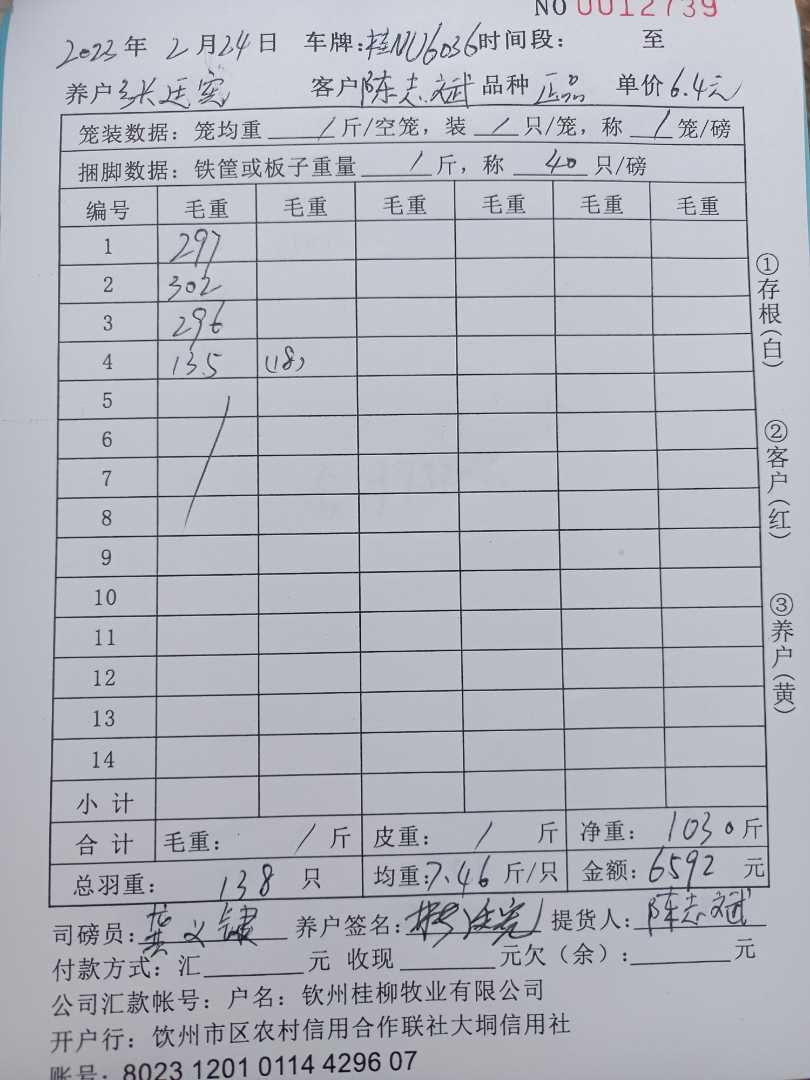 NO 0012739
2023年 2月24日 车牌:桂NU6036时间段: 至
养户 张廷宪 客户 陈志斌 品种 正品 单价 6.4元
笼装数据:笼均重 / 斤/空笼,装 / 只/笼,称 / 笼/磅
捆脚数据:铁筐或板子重量 / 斤,称 40 只/磅
编号 毛重 毛重 毛重 毛重 毛重 毛重
1 297
2 302
3 296
4 135 (18)
5
6
7
8
9
10
11
12
13
14
小计
合计 毛重: / 斤 皮重: / 斤 净重: 1030 斤
总羽重: 138 只 均重:7.46 斤/只 金额:6592 元
司磅员: 养户签名: 提货人:陈志斌
付款方式:汇 元 收现 元欠(余): 元
公司汇款帐号:户名:钦州桂柳牧业有限公司
开户行:钦州市区农村信用合作联社大垌信用社
账号:8023 1201 0114 4296 07
①存根(白)
②客户(红)
③养户(黄)